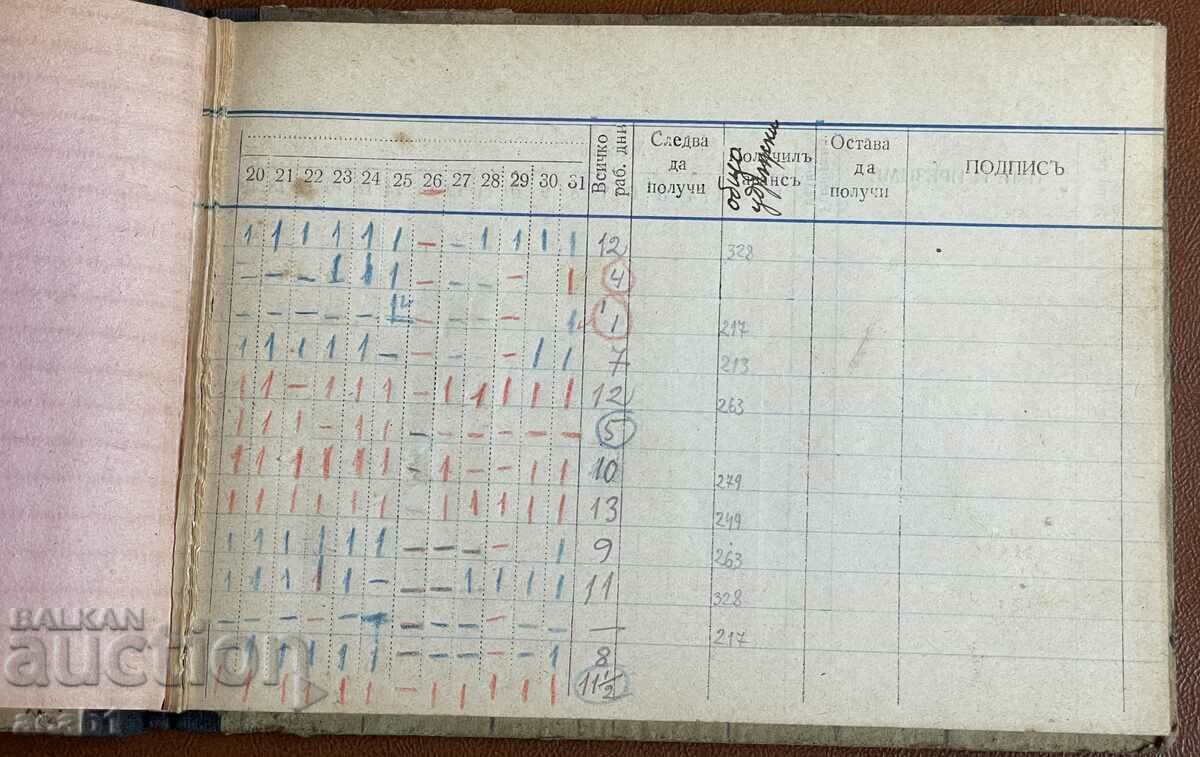 Всичко раб. дни
Следва да получи
общо удръжки
Получилъ авансъ
Остава да получи
ПОДПИСЪ
20 21 22 23 24 25 26 27 28 29 30 31
1 1 1 1 1 1 — — 1 1 1 1 12 328
— — — 1 1 1 — — — — 1 4
— — — — — — — — — 1 1 217
1 1 1 1 1 — — — — 1 1 7 213
1 1 — 1 1 1 — 1 1 1 1 1 12 263
1 1 1 — 1 1 — — — — — — 5
1 1 1 1 1 1 — 1 — — 1 1 10 279
1 1 1 1 1 1 1 1 1 1 1 1 13 249
1 1 1 1 1 1 — — — — 1 9 263
1 1 1 1 1 — — — 1 1 1 1 11 328
— — — — — — — — — — — — 217
1 1 1 1 1 — — — — — 1 8
1 1 1 1 1 — 1 1 1 1 1 11 1/2
BALKAN
auction
acab1